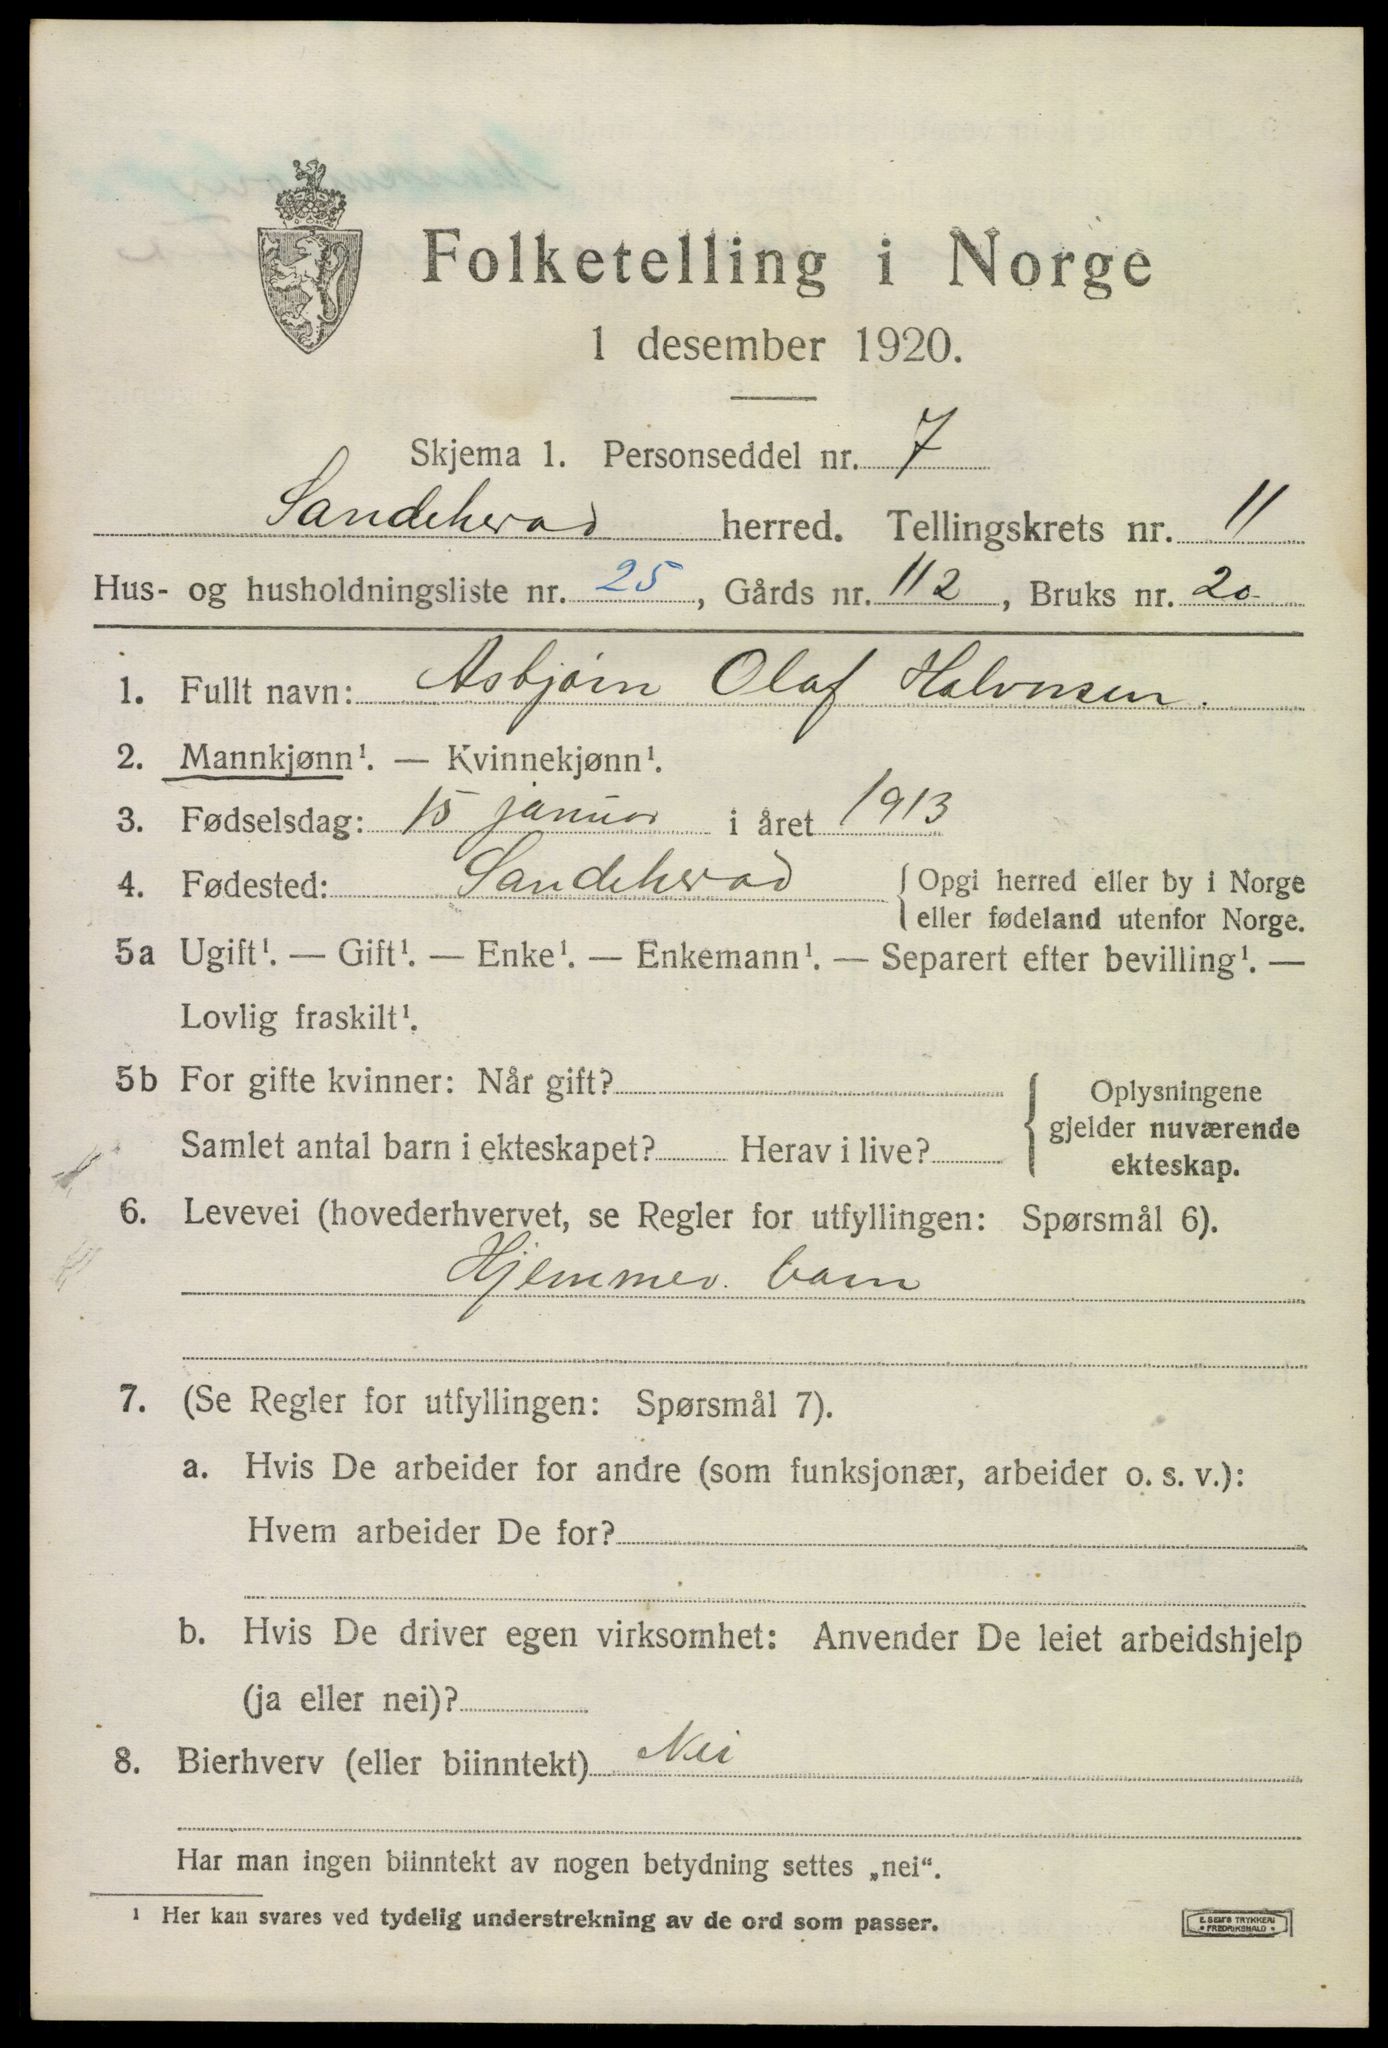 Folketelling i Norge
1 desember 1920.
Skjema 1. Personseddel nr. 7
Sandeherad herred. Tellingskrets nr. 11
Hus- og husholdningsliste nr. 25, Gårds nr. 112, Bruks nr. 20
1. Fullt navn: Asbjørn Olaf Halvorsen.
2. Mannkjønn¹. — Kvinnekjønn¹.
3. Fødselsdag: 15 januar i året 1913
4. Fødested: Sandeherad { Opgi herred eller by i Norge
eller fødeland utenfor Norge.
5a Ugift¹. — Gift¹. — Enke¹. — Enkemann¹. — Separert efter bevilling¹. —
Lovlig fraskilt¹.
5b For gifte kvinner: Når gift?
Samlet antal barn i ekteskapet? Herav i live?
{ Oplysningene
gjelder nuværende
ekteskap.
6. Levevei (hovederhvervet, se Regler for utfyllingen: Spørsmål 6).
Hjemmev. barn
7. (Se Regler for utfyllingen: Spørsmål 7).
a. Hvis De arbeider for andre (som funksjonær, arbeider o. s. v.):
Hvem arbeider De for?
b. Hvis De driver egen virksomhet: Anvender De leiet arbeidshjelp
(ja eller nei)?
8. Bierhverv (eller biinntekt) Nei
Har man ingen biinntekt av nogen betydning settes „nei“.
¹ Her kan svares ved tydelig understrekning av de ord som passer.
E. SEM'S TRYKKERI
FREDRIKSHALD